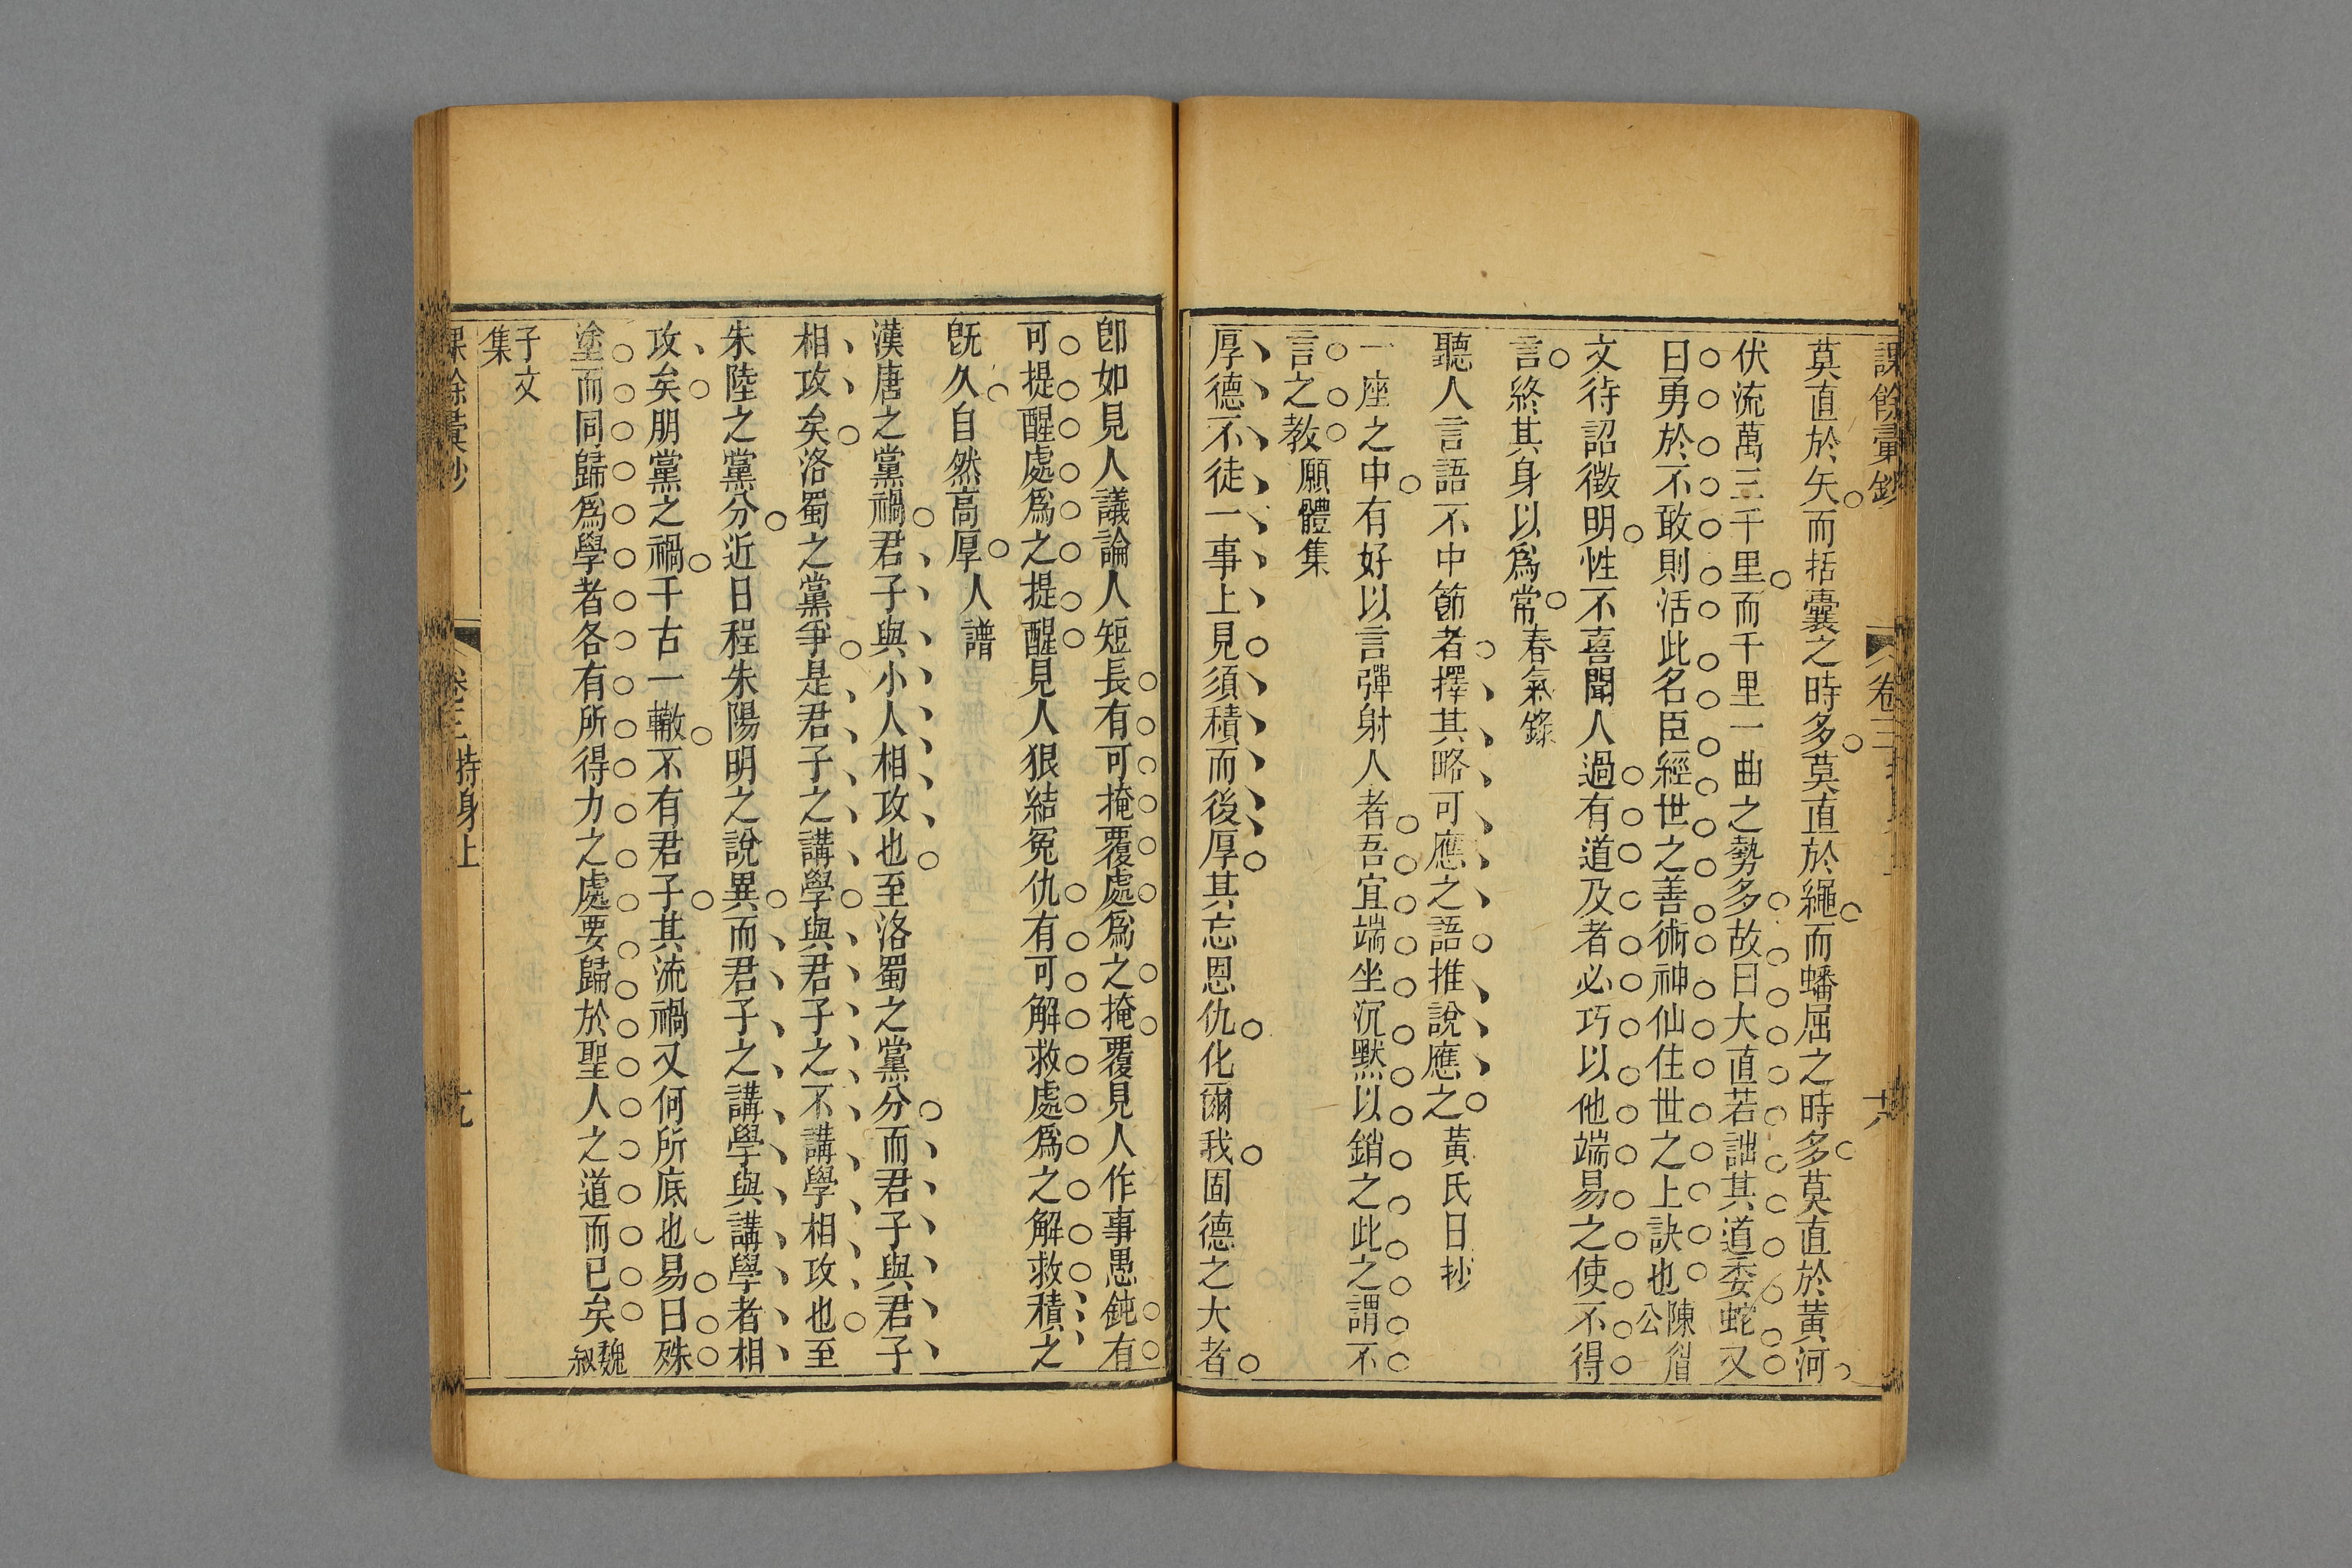 課餘彙鈔
卷三
莫直於矢而括囊之時多莫直於繩而蟠屈之時多莫直於黃河
伏流萬三千里而千里一曲之勢多故曰大直若詘其道委蛇又
曰勇於不敢則活此名臣經世之善術神仙住世之上訣也陳眉公
文待詔徵明性不喜聞人過有道及者必巧以他端易之使不得
言終其身以爲常春氣錄
聽人言語不中節者擇其略可應之語推說應之黃氏日抄
一座之中有好以言彈射人者吾宜端坐沉默以銷之此之謂不
言之教願體集
厚德不徒一事上見須積而後厚其忘恩仇化爾我固德之大者
卽如見人議論人短長有可掩覆處爲之掩覆見人作事愚鈍有
可提醒處爲之提醒見人狠結冤仇有可解救處爲之解救積之
旣久自然高厚人譜
漢唐之黨禍君子與小人相攻也至洛蜀之黨分而君子與君子
相攻矣洛蜀之黨爭是君子之講學與君子之不講學相攻也至
朱陸之黨分近日程朱陽明之說異而君子之講學與講學者相
攻矣朋黨之禍千古一轍不有君子其流禍又何所底也易曰殊
塗而同歸爲學者各有所得力之處要歸於聖人之道而已矣魏叔
子文集
課餘彙鈔
卷三持身上